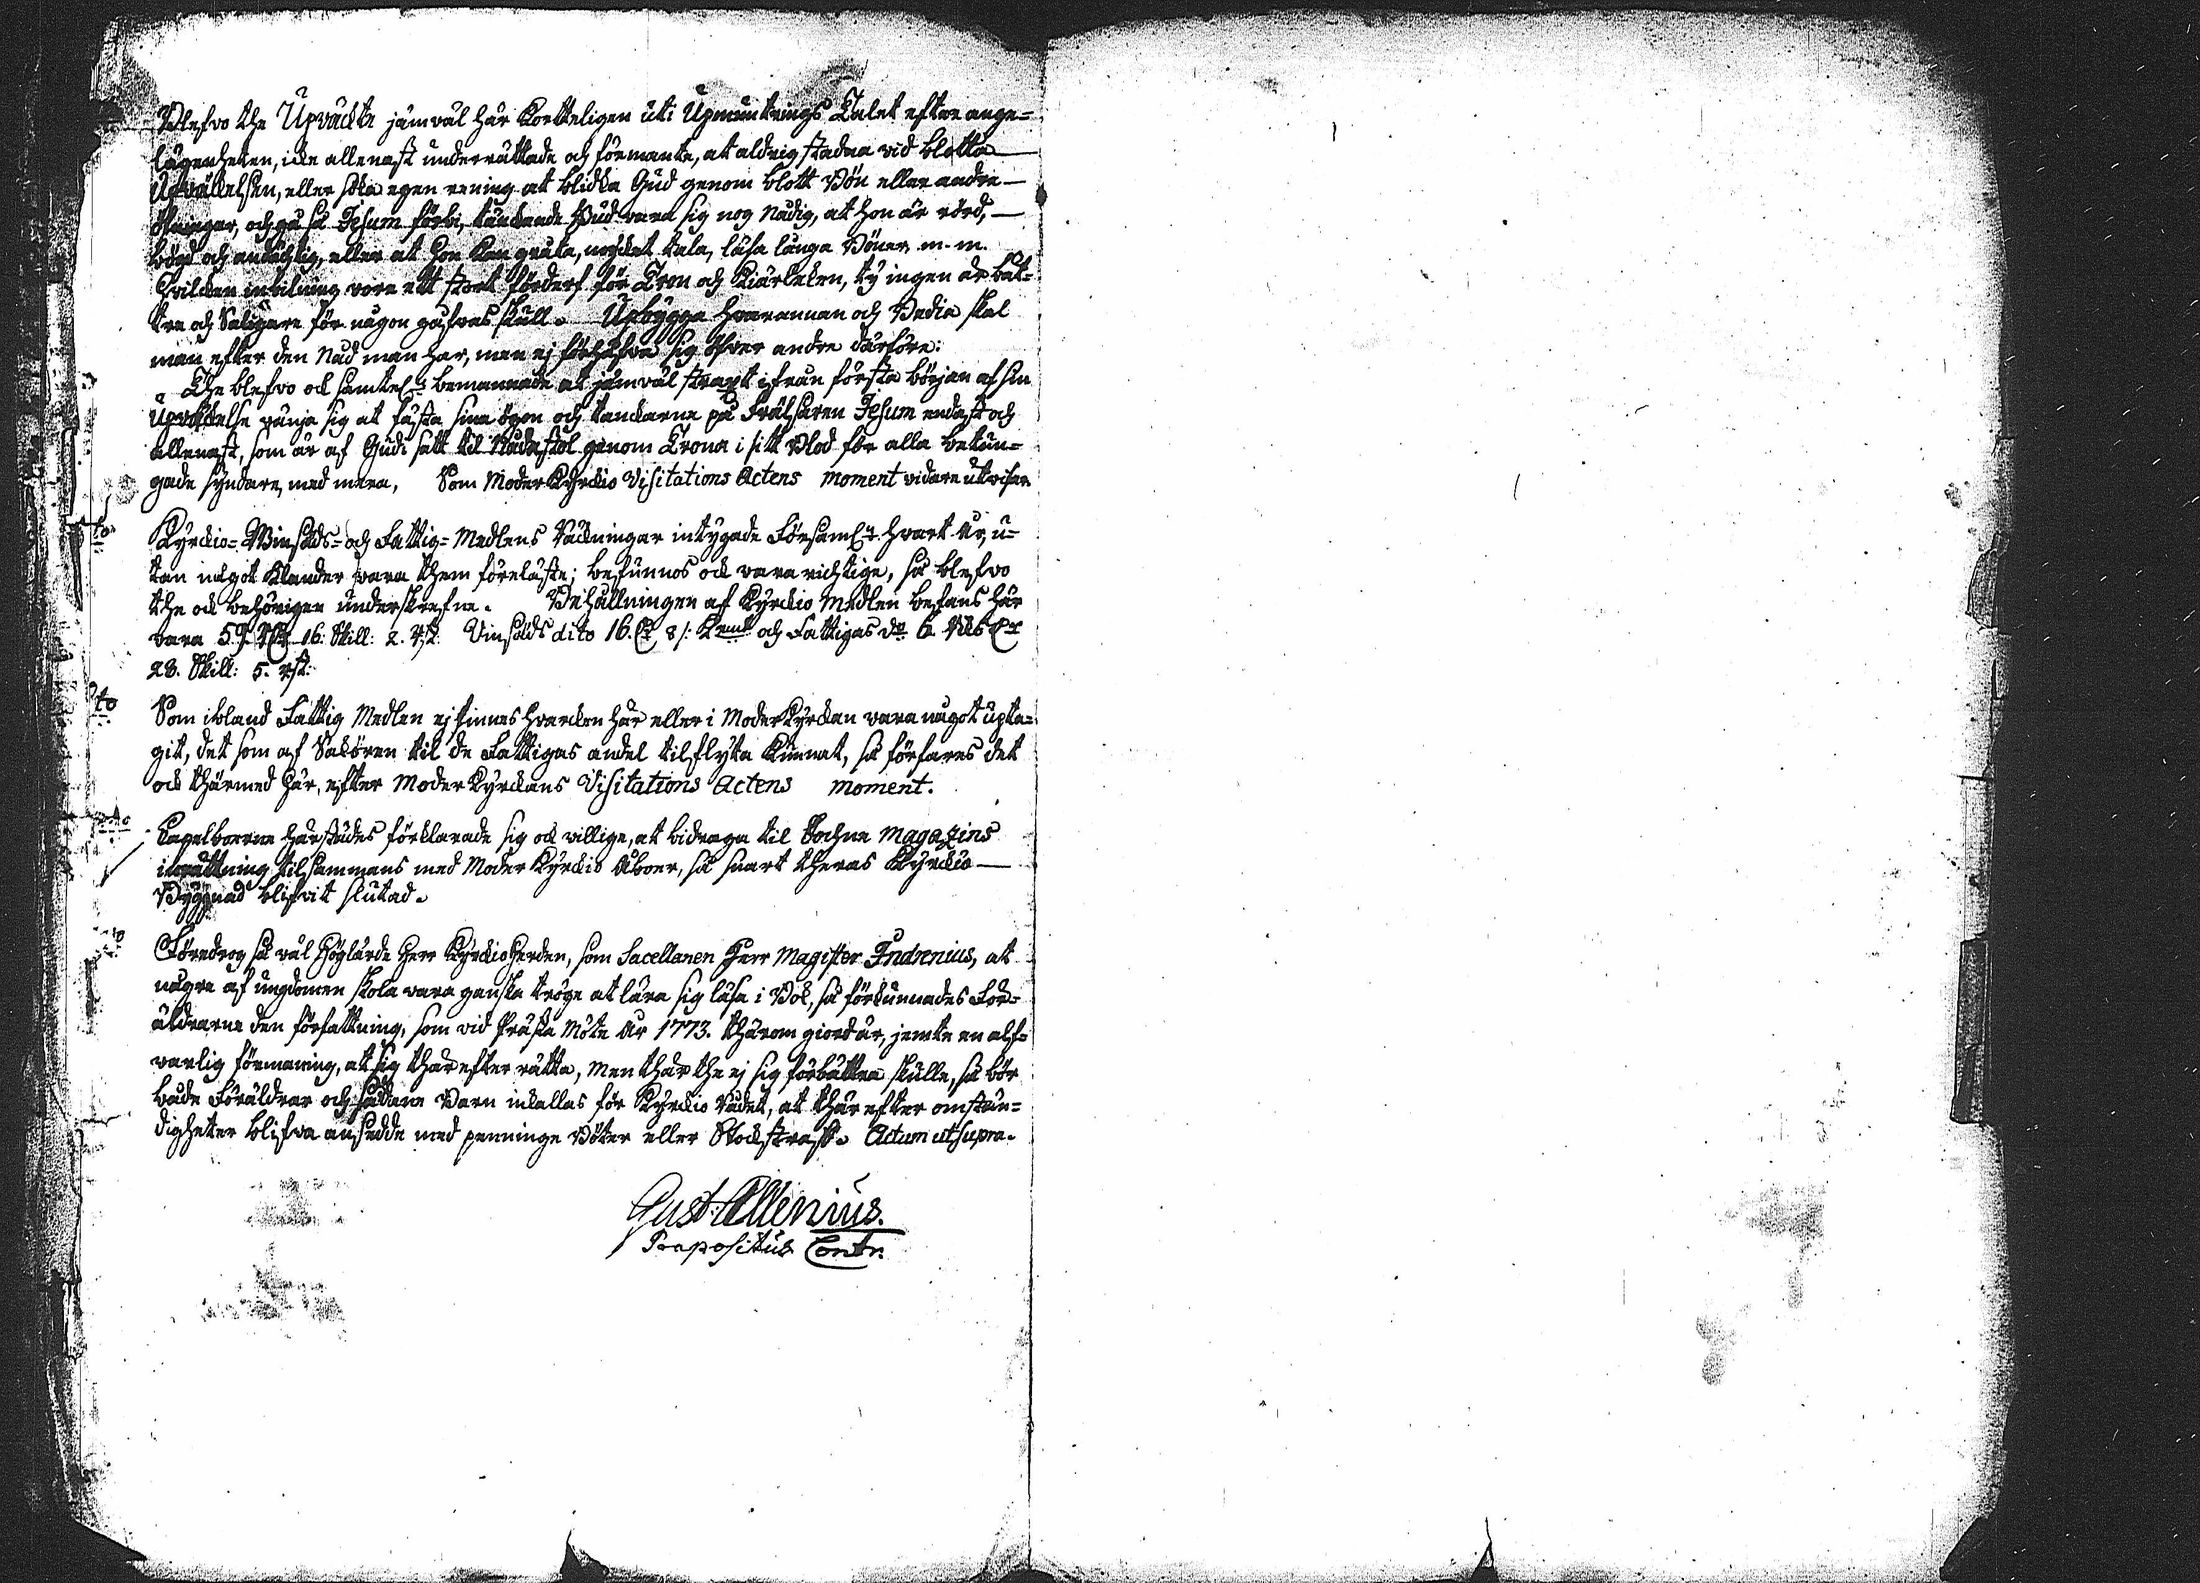 Blefvo the Upväckte jämväl här korteligen uti Upmuntrings Talet efter ange=
lägenheten, icke allenast underrättade och förmante, at aldrig stadna vid blotta
Upväckelsen, eller söka egen rening at blidka Gud genom blott Bön eller andre
öfningar, och gå så Jesum förbi, tänckande Gud vara sig nog Nådig, at hon är rörd,
böijd och andächtig, eller at hon kan gråta, mycket tala, läsa långa Böner m. m.
Hvilcken inbilning vore ett stort förderf för Tron och Kiärleken, ty ingen är bät=
tre och Saligare för någon gåfvas skull. Upbygga hvarannan och Bedia skal
man efter den Nåd man har, men ej förhäfva sig öfver andre därföre.
The blefvo ock samtel. bemannade at jämväl straxt ifrån första början af sin
Upväckelse vänja sig at fästa sina ögon och tanckarne på Frälsaren Jesum endast och
allenast, som är af Gudi satt til Nådastol genom Trona i sitt Blod för alla betun=
gade syndare, med mera, Som Moder Kyrckio Visitations Actens moment vidare utvisar
Kyrckio= Winsäds= och Fattig= Medlens Räckningar intygade Församl. hvart År, u=
tan något klander vara them föreläste; befunnos ock vara richtige, så blefvo
the ock behörigen underskrefne. Behållningen af Kyrckio Medlen befans här
vara 57. 16. Skill: 2. rst: Vinsäds dito 16. 8 /: och Fattigas do 6. Rds
28. Skill: 5. rst:
Som ibland Fattig Medlen ej finnes hvarcken här eller i Moder Kyrckan vara något upta=
git, det som af Sakören til de Fattigas andel tilflyta kunnat, så förfares det
ock thärmed här, efter Moder Kyrckans Visitations Actens moment.
Capelboerne härstädes förklarade sig ock villige, at bidraga til Sochne Magazins
inrättning tilsammans med Moder Kyrckio Åboer, så snart theras Kyrckio
Byggnad blifvit slutad.
Föredrog så väl Höglärde Herr Kyrckioherden, som Sacellanen Herr Magister Indrenius, at
någre af ungdomen skola vara ganska tröge at lära sig läsa i Bok, så förkunnades För=
äldrarne den författning, som vid Präste Möte År 1773. thärom giord är, jemte en alf=
varlig förmaning, at sig thärefter rätta, men thär the ej sig förbättra skulle, så bör
både Föräldrar och sådane Barn inkallas för Kyrckio Rådet, at thär efter omstän=
digheter blifva ansedde med penninge Böter eller Stockstraff. Actum ut supra.
Gust: Allenius.
Praepositus Contr.